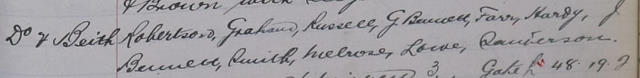 & Brown
Do v Beith Robertson, Graham, Russell, G Bennett, Farr, Hardy, J
Bennett, Smith, Melrose, Lowe, Sanderson.
3 Gate £ 48.19.9